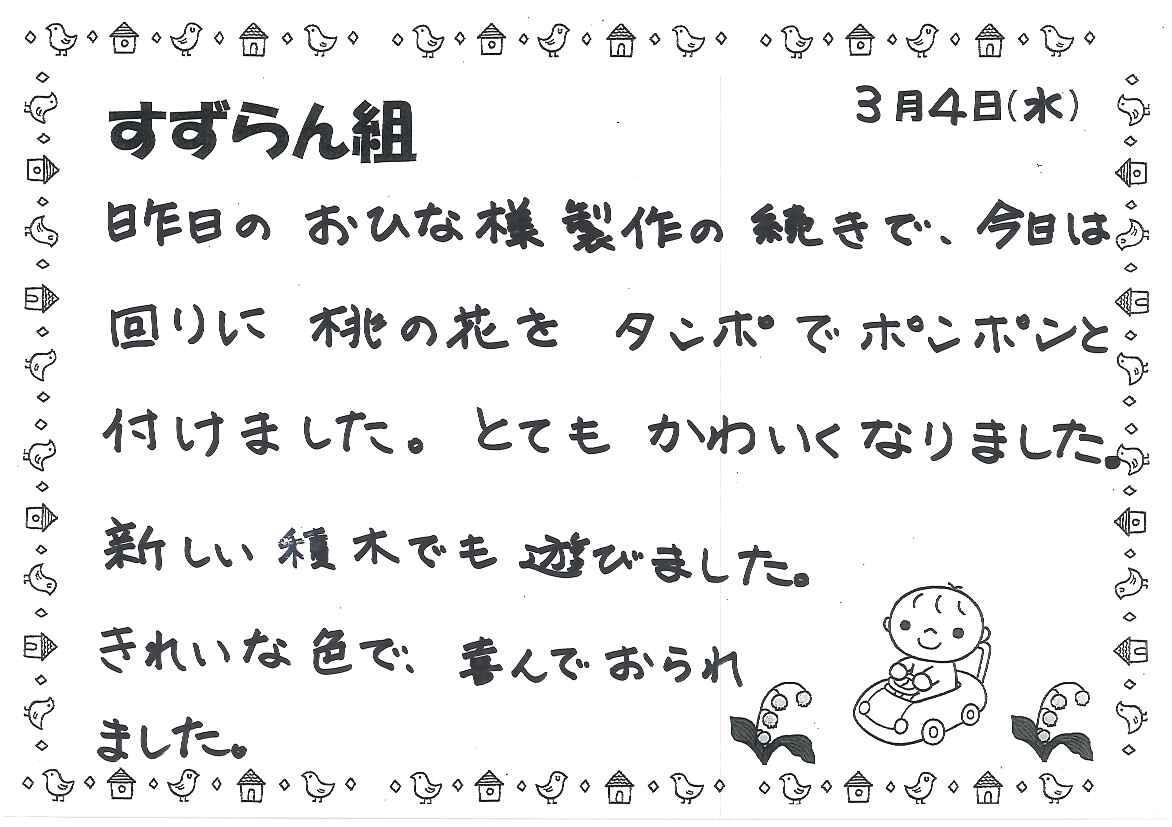 すずらん組
3月4日(水)
昨日の おひな様 製作の 続きで、今日は
回りに 桃の花を タンポで ポンポンと
付けました。 とても かわいくなりました。
新しい 積木でも 遊びました。
きれいな 色で、喜んで おられ
ました。